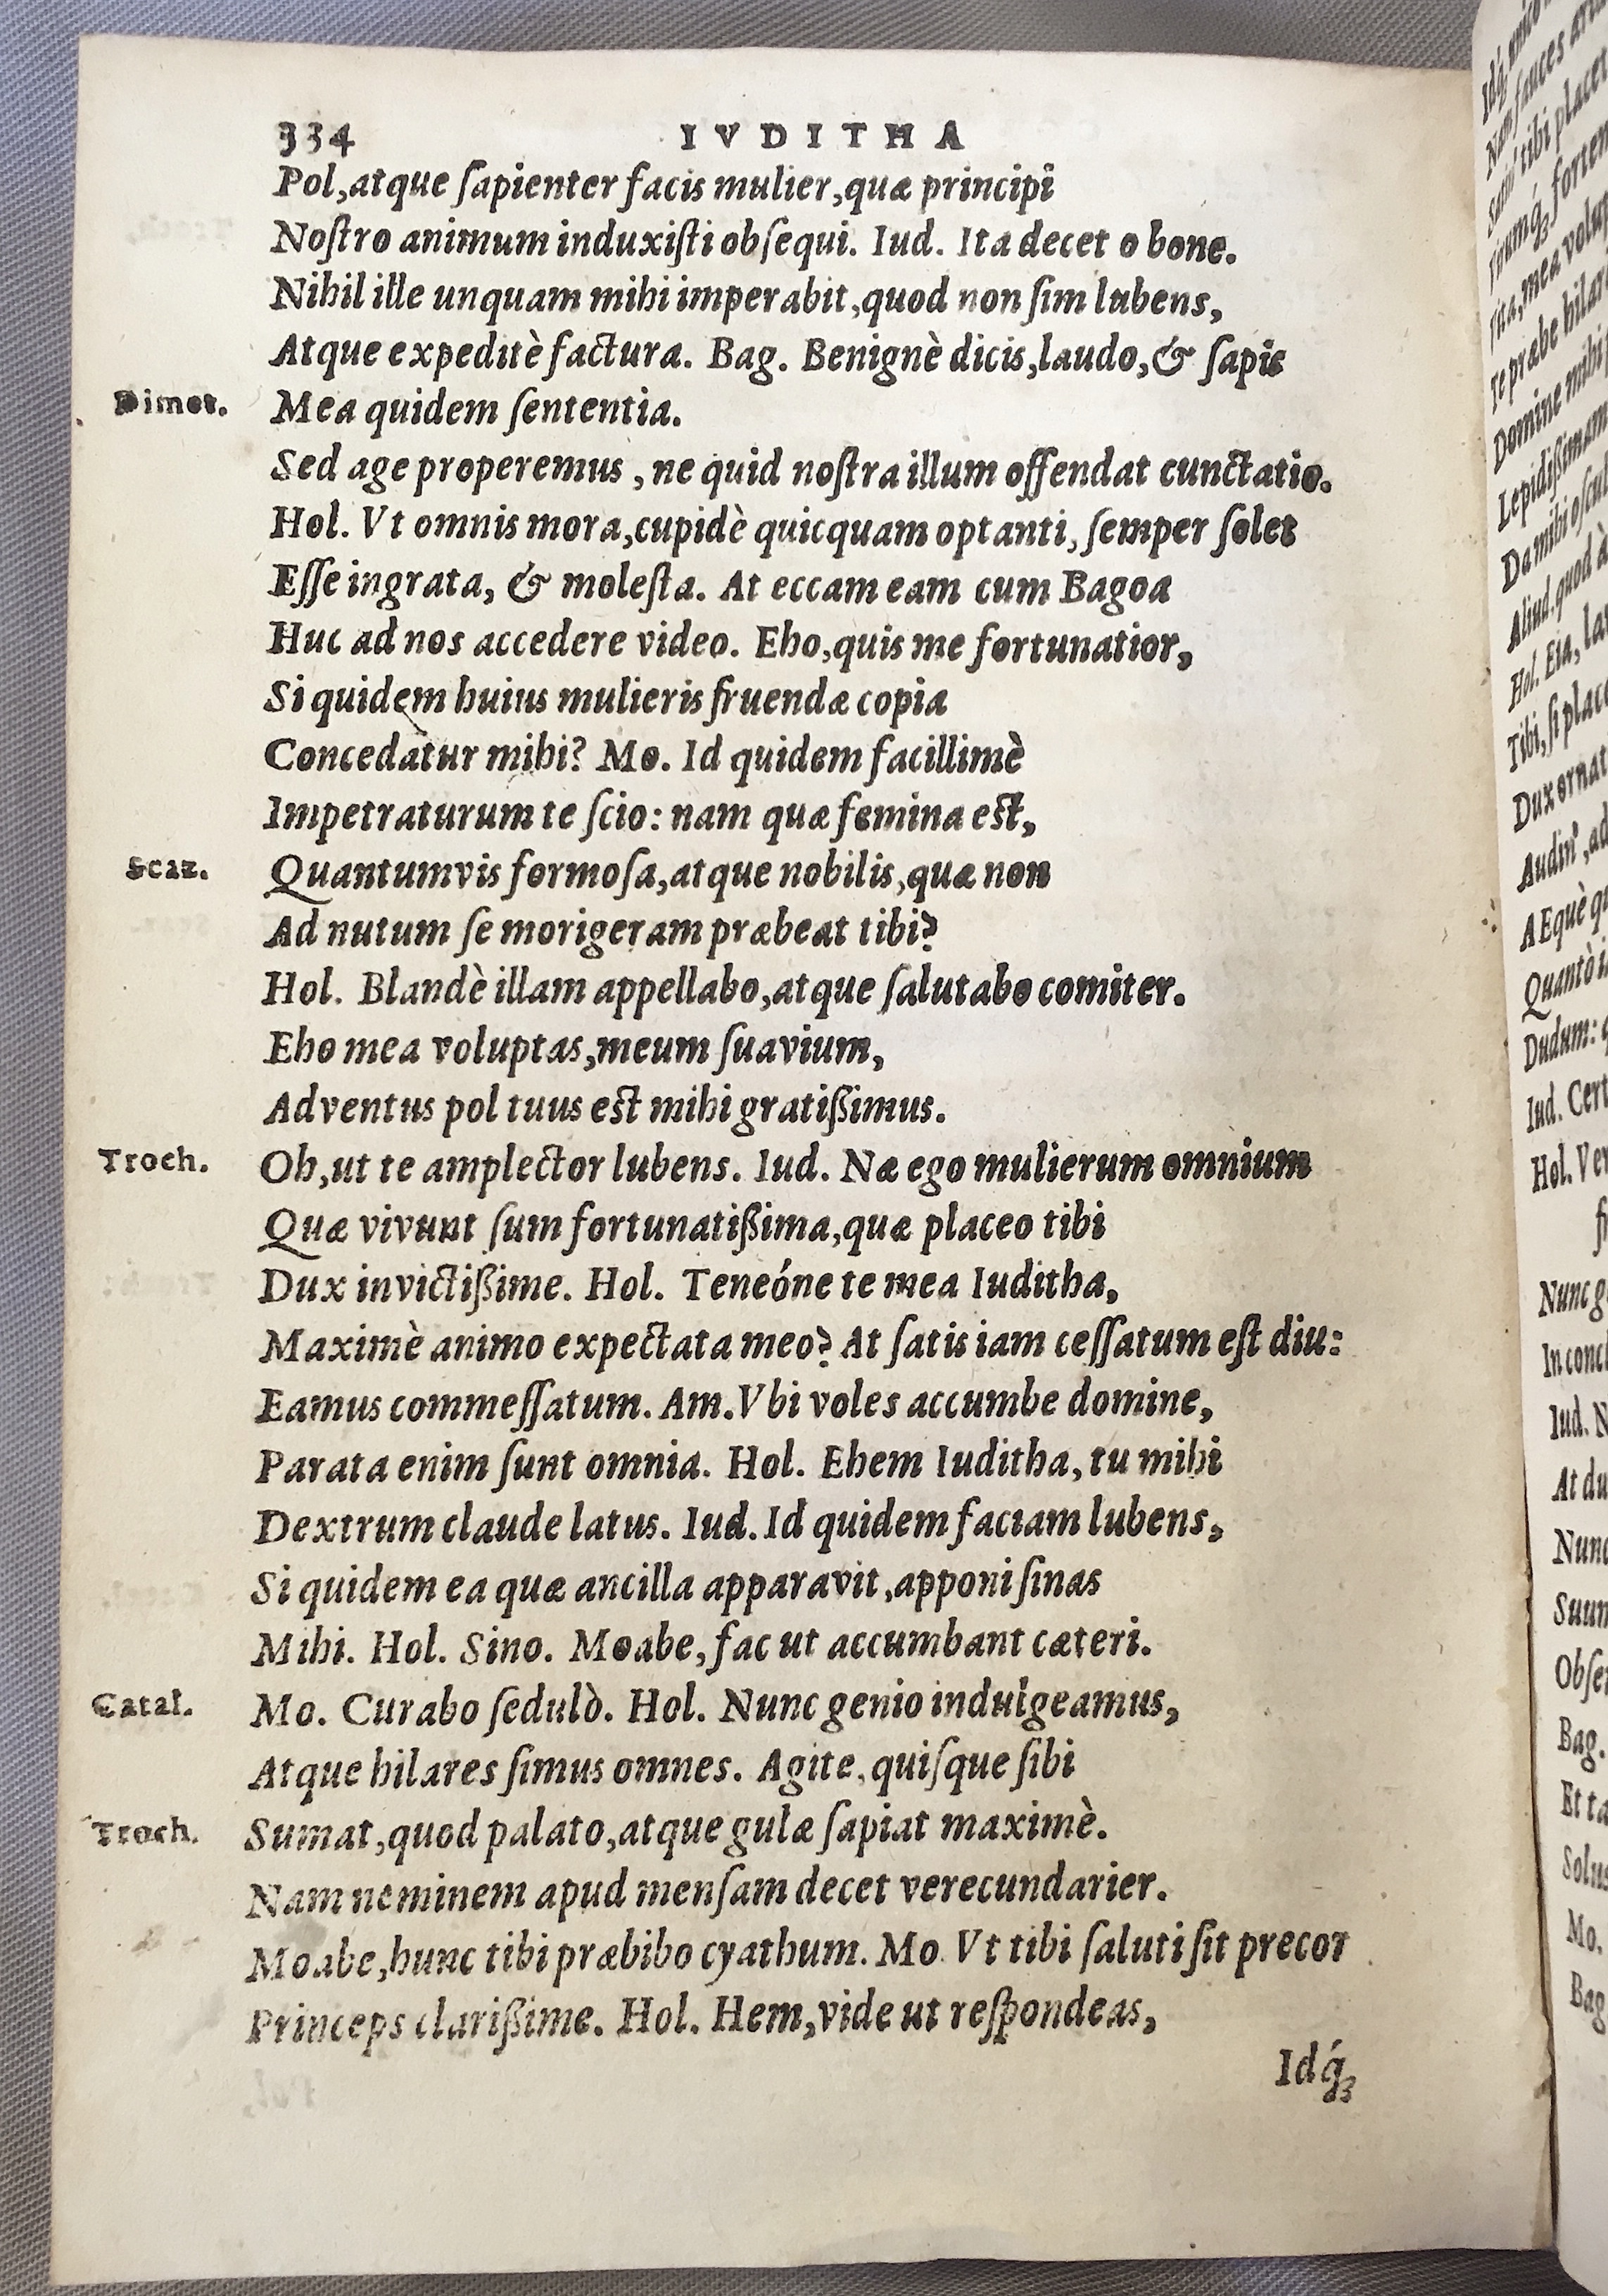 334 IVDITHA
Pol,atque ſapienter facis mulier,quæ principi
Noſtro animum induxiſti obſequi. Iud. Ita decet o bone.
Nihil ille unquam mihi imperabit,quod non ſim lubens,
Atque expeditè factura. Bag. Benignè dicis,laudo,& ſapis
Dimet. Mea quidem ſententia.
Sed age properemus , ne quid noſtra illum offendat cunctatio.
Hol. Vt omnis mora,cupidè quicquam optanti, ſemper ſolet
Eſſe ingrata, & moleſta. At eccam eam cum Bagoa
Huc ad nos accedere video. Eho,quis me fortunatior,
Si quidem huius mulieris fruendæ copia
Concedatur mihi? Mo. Id quidem facillimè
Impetraturum te ſcio: nam quæ femina est,
Scaz. Quantumvis formoſa,atque nobilis,quæ non
Ad nutum ſe morigeram præbeat tibi?
Hol. Blandè illam appellabo,atque ſalutabo comiter.
Eho mea voluptas,meum ſuavium,
Adventus pol tuus est mihi gratißimus.
Troch. Oh,ut te amplector lubens. Iud. Næ ego mulierum omnium
Quæ vivunt ſum fortunatißima,quæ placeo tibi
Dux invictißime. Hol. Teneóne te mea Iuditha,
Maximè animo expectata meo? At ſatis iam ceſſatum eſt diu:
Eamus commeſſatum. Am. Vbi voles accumbe domine,
Parata enim ſunt omnia. Hol. Ehem Iuditha, tu mihi
Dextrum claude latus. Iud. Id quidem faciam lubens,
Si quidem ea quæ ancilla apparavit,apponi ſinas
Mihi. Hol. Sino. Moabe, fac ut accumbant cæteri.
Catal. Mo. Curabo ſedulò. Hol. Nunc genio indulgeamus,
Atque hilares ſimus omnes. Agite, quiſque ſibi
Troch. Sumat,quod palato,atque gulæ ſapiat maximè.
Nam neminem apud menſam decet verecundarier.
Moabe,hunc tibi præbibo cyathum. Mo. Vt tibi ſaluti ſit precor
Princeps clarißime. Hol. Hem,vide ut reſpondeas,
Idq́ꝫ